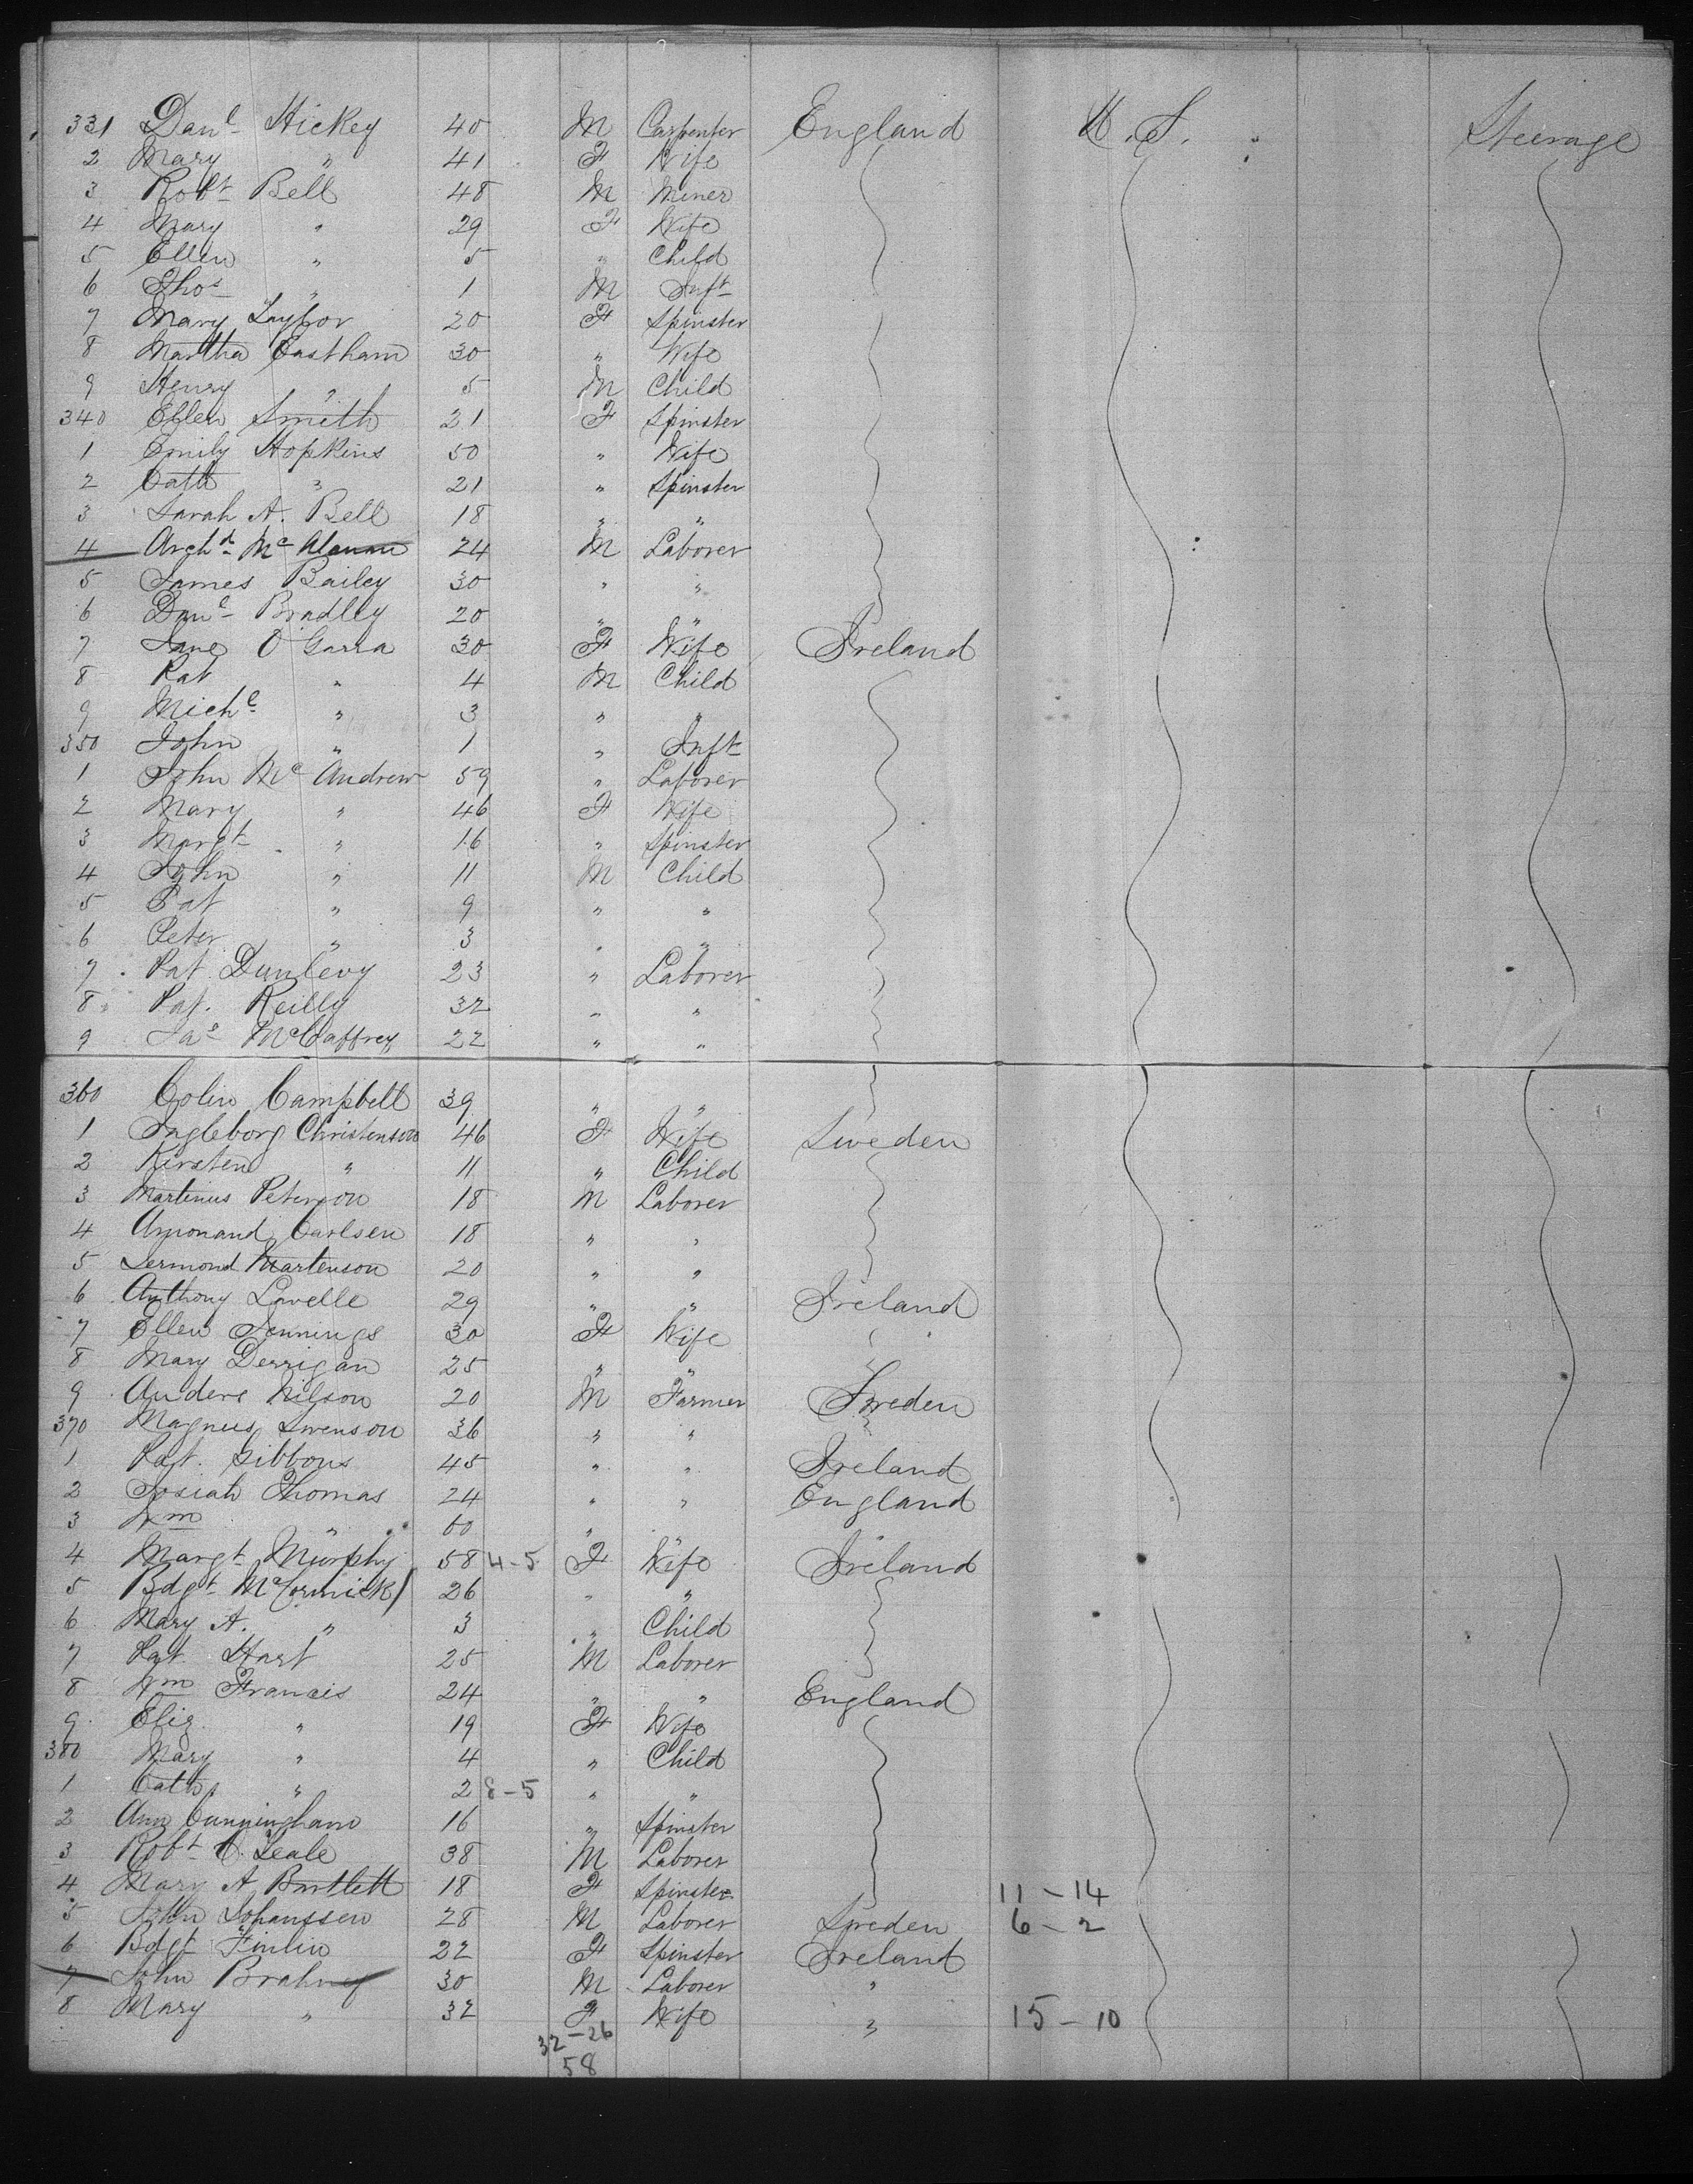 331 Danl Hickey 40 M Carpenter England U.S. Steerage
2 Mary " 41 F Wife
3 Robt Bell 48 M Miner
4 Mary " 29 F Wife
5 Ellen " 5 " Child
6 Thos " 1 M Inft
7 Mary Taylor 20 F Spinster
8 Martha Eastham 30 " Wife
9 Henry " 5 M Child
340 Ellen Smith 21 F Spinster
1 Emily Hopkins 50 " Wife
2 Cath " 21 " Spinster
3 Sarah A. Bell 18 " "
4 Archd Mc 24 M Laborer
5 James Bailey 30 " "
6 Danl Bradley 20 " "
7 Jane O'Garra 30 F Wife Ireland
8 Pat " 4 M Child
9 Michl " 3 " "
350 John " 1 " Inft
1 John McAndrew 59 " Laborer
2 Mary " 46 F Wife
3 Margt " 16 " Spinster
4 John " 11 M Child
5 Pat " 9 " "
6 Peter " 3 " "
7 Pat Dunlevy 23 " Laborer
8 Pat. Reilly 32 " "
9 Jas McCaffrey 22 " "
360 Colin Campbell 39 " "
1 Ingleborg Christenson 46 F Wife Sweden
2 Kirsten " 11 " Child
3 Martinus Peterson 18 M Laborer
4 Carlsen 18 " "
5 Martenson 20 " "
6 Anthony Lavelle 29 " " Ireland
7 Ellen Jennings 30 F Wife
8 Mary Derrigan 25 " "
9 Anders Nilson 20 M Farmer Sweden
370 Magnus Swenson 36 " "
1 Pat. Gibbons 45 " " Ireland
2 Josiah Thomas 24 " " England
3 Wm " 60 " "
4 Margt Murphy 58 4-5 F Wife Ireland
5 Bdgt McCormick 26 " "
6 Mary A. " 3 " Child
7 Pat Hart 25 M Laborer
8 Wm Francis 24 " " England
9 Eliz " 19 F Wife
380 Mary " 4 " Child
1 Cath " 2 8-5 " "
2 Ann Cunningham 16 " Spinster
3 Robt 38 M Laborer
4 Mary A Bartlett 18 F Spinster 11-14
5 John Johanssen 28 M Laborer Sweden 6-2
6 Bdgt Finlin 22 F Spinster Ireland
7 John Brahney 30 M Laborer "
8 Mary " 32 F Wife " 15-10
32-26
58